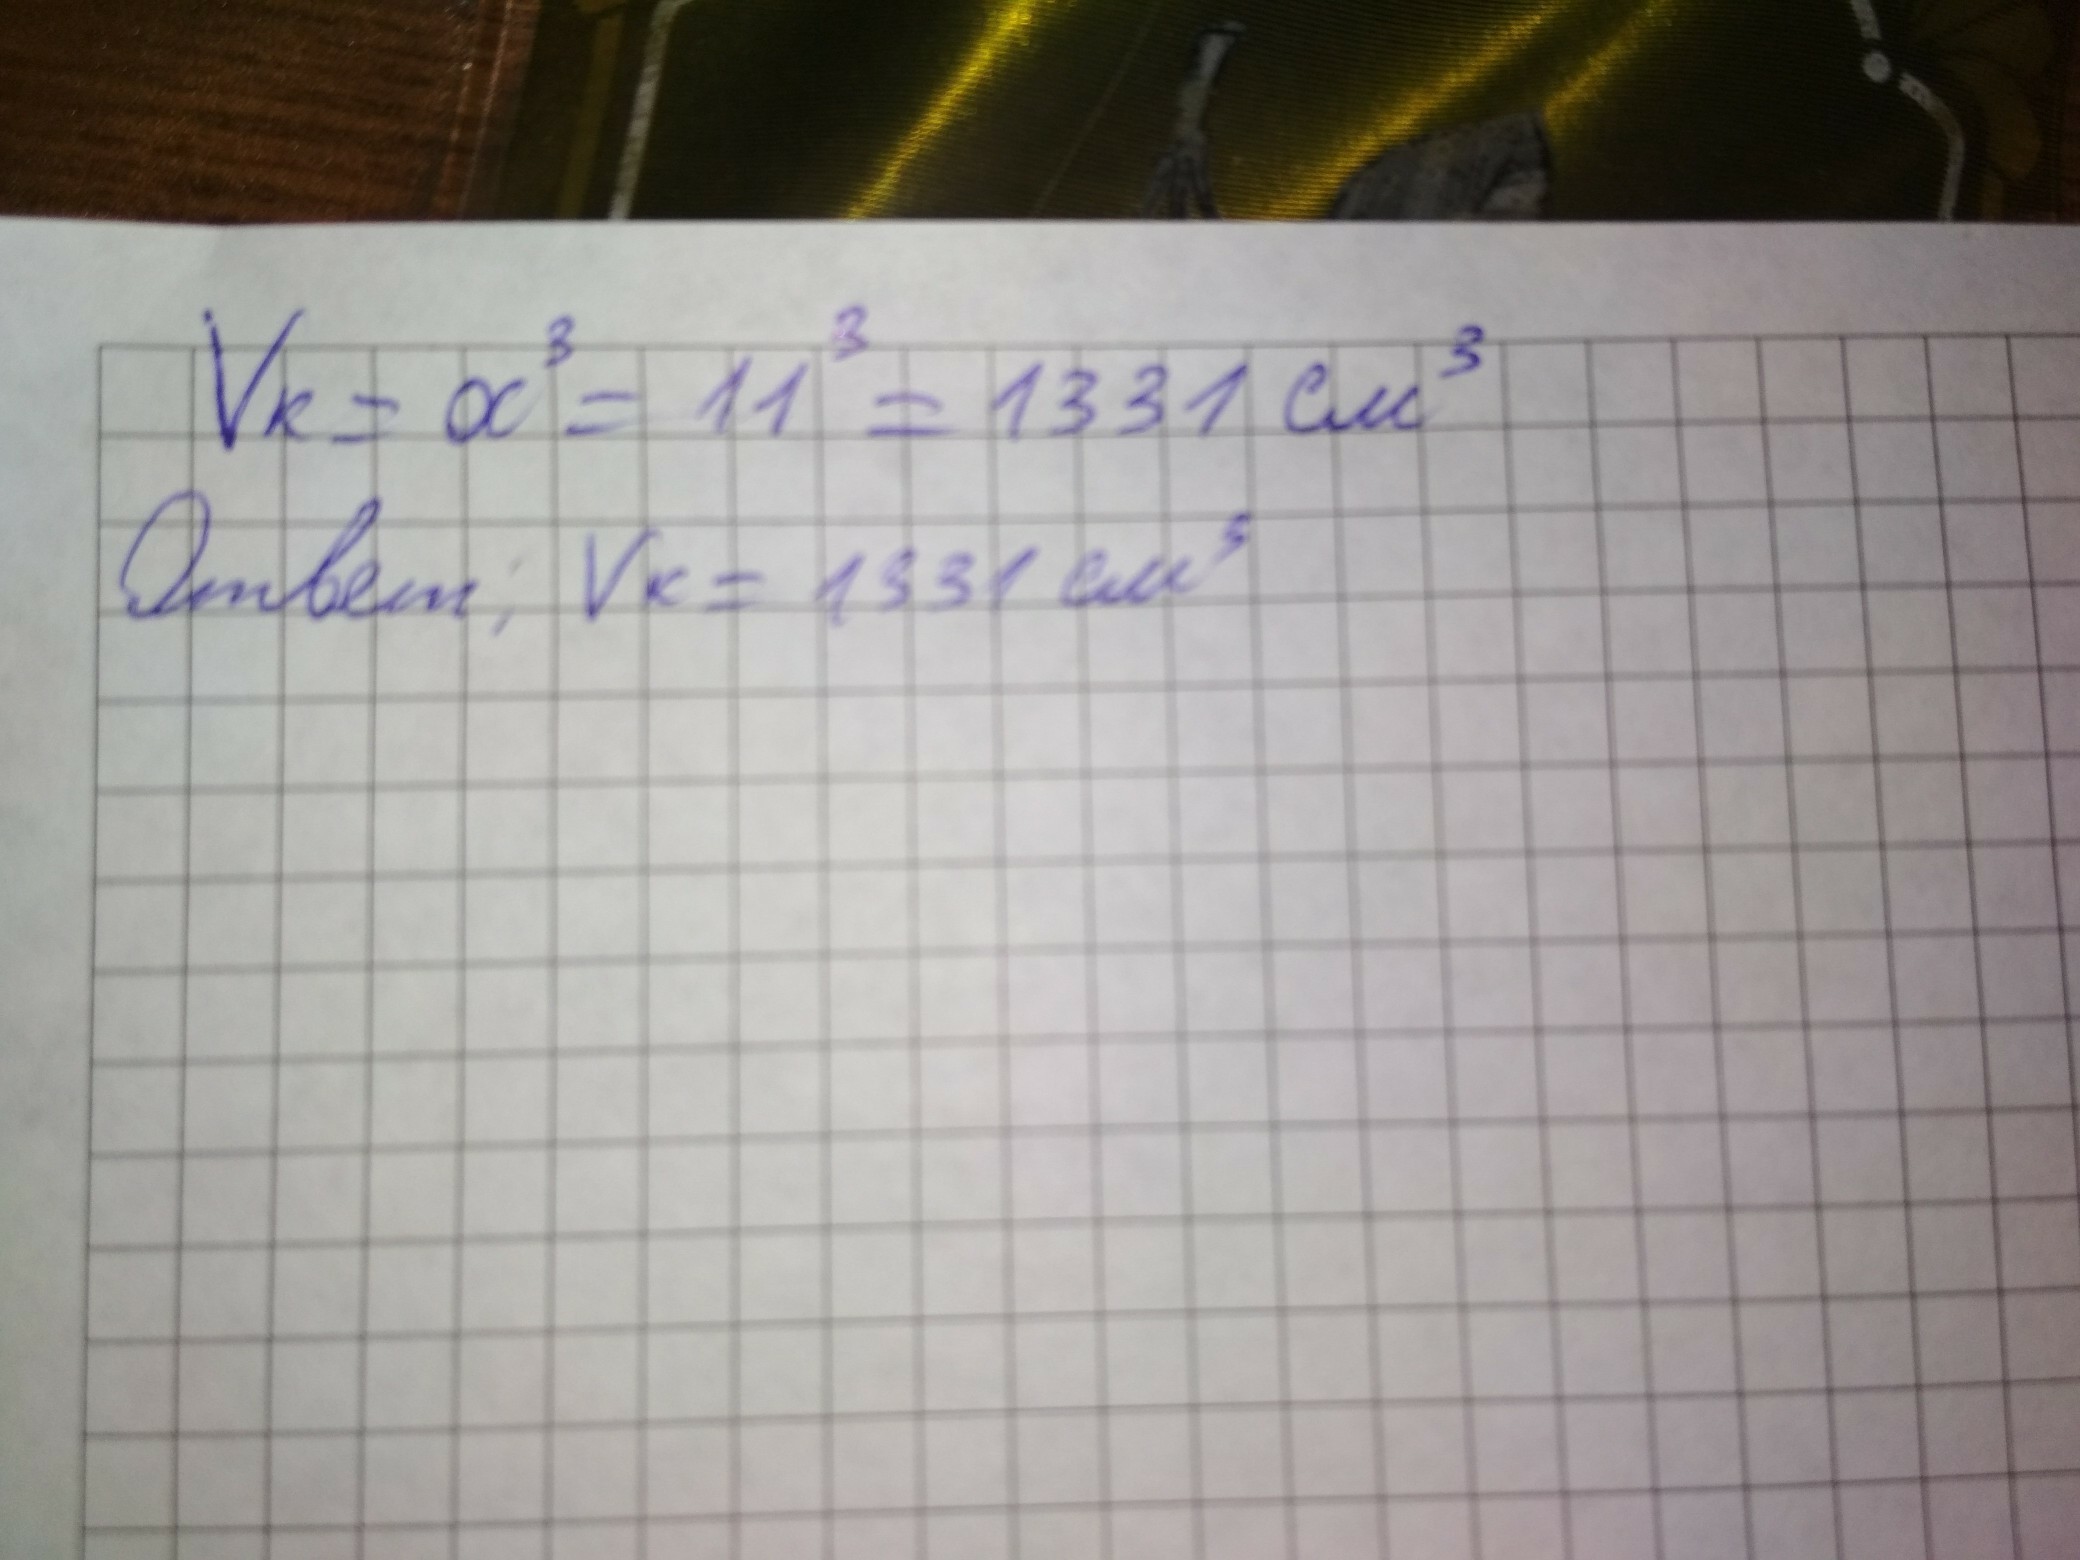 Vк = a³ = 11³ = 1331 см³
Ответ; Vк = 1331 см³